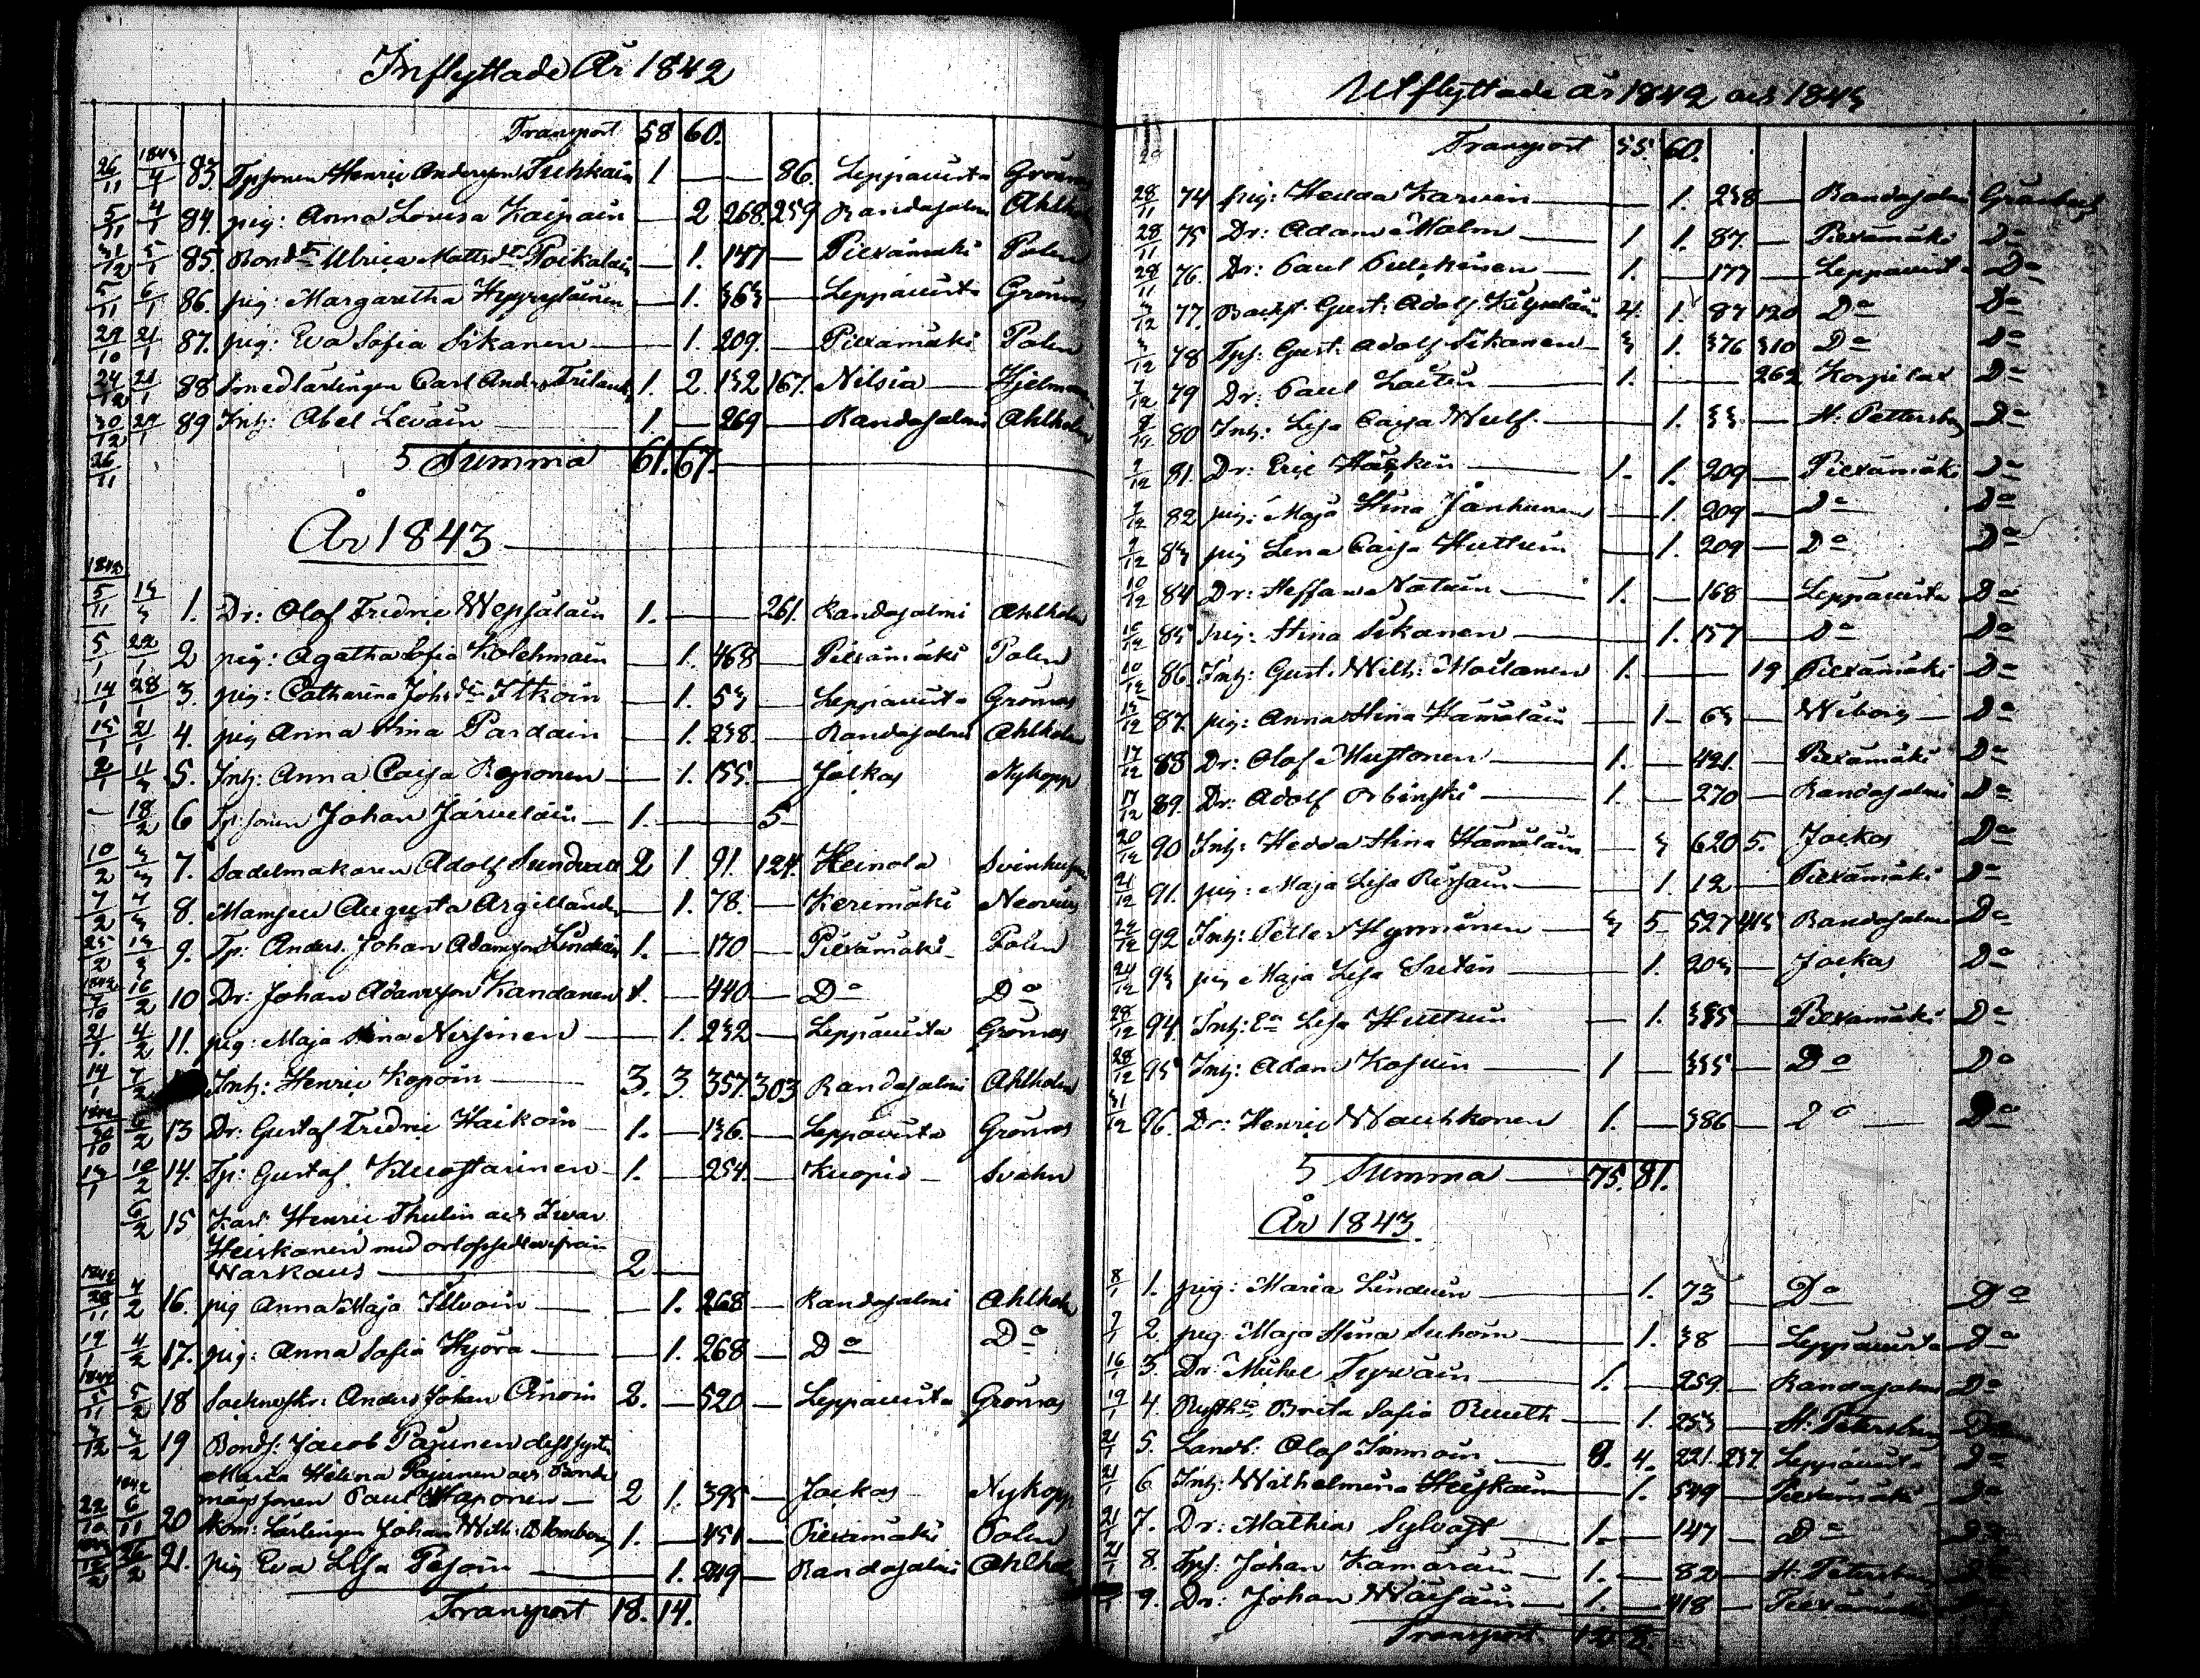 Inflyttade År 1842
Transport 58 60.
26/11 1843 4/1 83. Tpsonen Henric Andersson Tuhkain 1 — — 86. Leppävirta Grönros
5/11 4/1 84. pig: Anna Lovisa Kaipain — 2 268. 259 Randasalmi Ahlholm
31/12 5/1 85. Bondd:r Ulrica Mattsdr Poikalain — 1. 147 — Piexämäki Polen
5/11 6/1 86. pig: Margaretha Hyyryläinen — 1. 363 — Leppävirta Grönros
29/10 21/1 87. pig: Eva Sofia Sikanen — 1. 209. — Piexämäki Polen
24/12 21/1 88 Smedlärlingen Carl Andr: 1. 2. 132 167. Nilsiä Hjelmman
30/12 27/1 89 Inh: Abel Leväin 1. — 269 — Randasalmi Ahlholm
26/11 S Summa 61. 67.
År 1843
1842
5/11 13/3 1. Dr: Olof Fredric Wepsäläin 1. — 261. Randasalmi Ahlholm
5/1 22/1 2 pig: Agatha Sofia Kolehmain — 1. 468 — Piexämäki Polen
14/1 28/1 3. pig: Catharina Johsdr Itkoin — 1. 53 — Leppävirta Grönros
15/1 21/1 4. pig Anna Stina Pardain — 1. 238. — Randasalmi Ahlholm
2/1 11/3 5. Inh: Anna Caisa Reponen — 1. 155. — Jokkas Nykopp
— 18/2 6 Tp: sonen Johan Järveläin — 1. — 5
10/2 3/3 7. Sadelmakaren Adolf Sundvall 2 1. 91. 124. Heinola Svinhufvud
7/2 4/3 8. Mamsell Augusta Argillander — 1. 78. — Kerimäki Neovius
25/2 13/3 9. Tp: Anders Johan Adamsson 1. — 170 — Piexämäki Polen
1842 9/10 16/2 10 Dr: Johan Adamsson Kandanen 1. — 440 — Do Do
21/1 4/2 11. pig: Maja Stina Nissinen — 1. 232 — Leppävirta Grönros
14/1 7/2 Inh: Henric Kopoin 3. 3. 357. 303 Randasalmi Ahlholm
1842 30/10 6/2 13 Dr: Gustaf Fredric Haikoin 1. — 136. — Leppävirta Grönros
13/1 10/2 14. Tp: Gustaf Kuostarinen 1. — 254. — Kuopio Svahn
6/2 15 Karl Henric Thulin och Iwar
Heiskanen med orlofssedlar ifrån
Warkaus — 2 —
1842 28/11 4/2 16. pig Anna Maja Ilvoin — 1. 268 — Randasalmi Ahlholm
19/1 4/2 17. pig: Anna Sofia Hyörä — 1. 268 — Do Do
1842 5/11 5/2 18 Sockneskr: Anders Johan Ainoin 2. — 520 — Leppävirta Grönros
3/12 3/2 19 Bonds: Jacob Pajunen dess syster
Maria Helena Pajunen och Bonde
mågssonen Paul Haponen — 2 1. 395 — Jockas Nykopp
22/10 1842 6/11 20 Hom: Lärlingen Johan Wilh: Blomberg 1. — 451 — Piexämäki Polen
12/2 26/2 21. pig Eva Lisa Pesoin — 1. 249 — Randasalmi Ahlholm
Transport 18. 14.
Utflyttade år 1842 och 1843
Transport 55. 60.
28/11 74 pig: Hedda Karvin — 1. 238 — Randasalmi Grönberg
28/11 75 Dr: Adam Malm — 1 1. 87. — Piexämäki Do
28/11 76. Dr: Paul Pulkkinen — 1. — 177 — Leppävirta Do
3/12 77. Backst. Gust: Adolf 4. 1. 87 120 Do Do
3/12 78 Tps: Gust: Adolf Sikanen 3 1. 376 310 Do Do
7/12 79 Dr: Paul Laitin 1. — 262 Korpilax Do
8/12 80 Inh: Lisa Caisa Wulf. — 1. 33. — St: Pettersb. Do
9/12 81. Dr: Eric 1. 1. 209 — Piexämäki Do
9/12 82 pig: Maja Stina Jänhunen — 1. 209 — Do Do
9/12 83 pig Lena Caisa Huttuin — 1. 209 — Do Do
10/12 84 Dr: Staffan Notuin — 1. — 168 — Leppävirta Do
10/12 85 pig: Stina Sikanen — 1. 157 — Do Do
10/12 86. Inh: Gust: Wilh: Moilanen 1. — 19 Piexämäki Do
13/12 87. pig: Anna Stina Hämäläin — 1 — 63 — Wiborg — Do
17/12 88 Dr: Olof Mustonen — 1. — 421. — Piexämäki Do
17/12 89. Dr: Adolf Orbinski — 1. — 270 — Randasalmi Do
20/12 90 Inh: Hedda Stina Hämäläin — 3 620 5. Jockas Do
21/12 91. pig: Maja Lisa Rissain — 1. 12 — Piexämäki Do
22/12 92 Inh: Petter Hyvninen — 3 5 527 415 Randasalmi Do
24/12 93 pig Maja Lisa — 1. 203 — Jockas Do
28/12 94. Inh: Lisa Huttuin — 1. 385 — Piexämäki Do
28/12 95 Inh: Adam Kosuin — 1 — 335 — Do Do
31/12 96. Dr: Henric Wauhkonen 1. — 386 — Do Do
S Summa — 75. 81.
År 1843.
8/1 1. pig: Maria Linduin — 1. 73 — Do Do
9/1 2. pig Maja Stina Suhoin — 1. 38 — Leppävirta Do
16/1 3. Dr: Michel Tyrväin — 1. — 259. — Randasalmi Do
19/1 4. Brita Sofia Reuth — 1. 253 — St: Petersburg Do
21/1 5. Landb: Olof Immoin — 8. 4. 221. 237 Leppävirta Do
21/1 6 Inh: Wilhelmina Heiskain — 1. 549 — Piexämäki Do
21/1 7. Dr: Mathias Sylvast — 1. — 147 — Do Do
21/1 8. Tps: Johan Kämäräin — 1. — 82 — St: Petersburg Do
9. Dr: Johan Wäisäin — 1. — 418 — Piexämäki
Transport